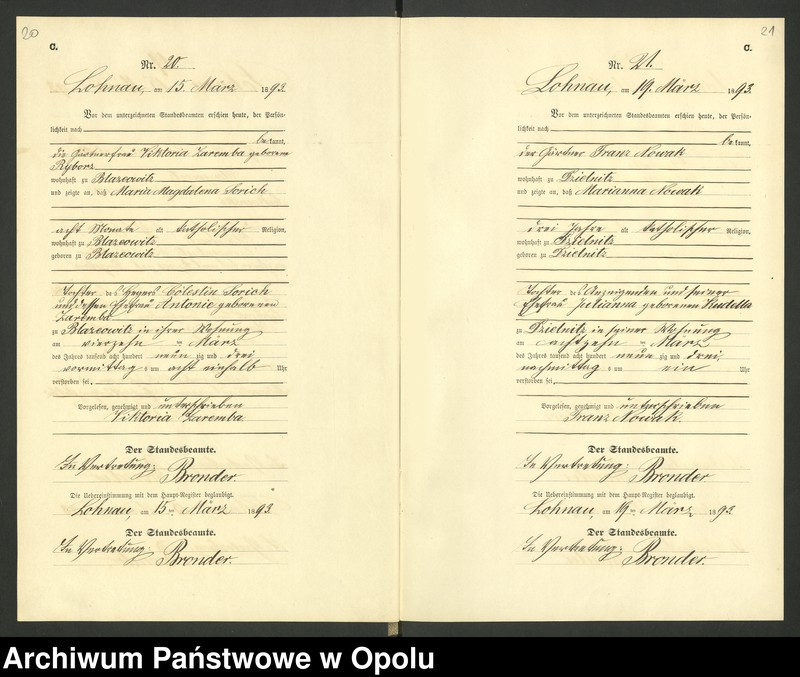 20
C.
Nr. 20.
Lohnau, am 15. März 1893.
Vor dem unterzeichneten Standesbeamten erschien heute, der Persön-
lichkeit nach
bekannt,
die Gärtnerfrau Viktoria Zaremba geborene
Ryborz
wohnhaft zu Blazeowitz
und zeigte an, daß Maria Magdalena Sorich
acht Monate alt katholischer Religion,
wohnhaft zu Blazeowitz
geboren zu Blazeowitz
Tochter des Hegers Cölestin Sorich
und dessen Ehefrau Antonie geborenen
Zaremba
zu Blazeowitz in ihrer Wohnung
am vierzehn ten März
des Jahres tausend acht hundert neun zig und drei
vormittag s um acht einhalb Uhr
verstorben sei.
Vorgelesen, genehmigt und unterschrieben
Viktoria Zaremba
Der Standesbeamte.
In Vertretung: Bronder.
Die Uebereinstimmung mit dem Haupt-Register beglaubigt.
Lohnau, am 15ten März 1893.
Der Standesbeamte.
In Vertretung: Bronder.
21
C.
Nr. 21.
Lohnau, am 19. März 1893.
Vor dem unterzeichneten Standesbeamten erschien heute, der Persön-
lichkeit nach
bekannt,
der Gärtner Franz Nowak
wohnhaft zu Dzielnitz
und zeigte an, daß Marianna Nowak
drei Jahre alt katholischer Religion,
wohnhaft zu Dzielnitz
geboren zu Dzielnitz
Tochter des Anzeigenden und seiner
Ehefrau Julianna geborenen Kudella
zu Dzielnitz in seiner Wohnung
am achtzehn ten März
des Jahres tausend acht hundert neun zig und drei
nachmittag s um ein Uhr
verstorben sei.
Vorgelesen, genehmigt und unterschrieben
Franz Nowak.
Der Standesbeamte.
In Vertretung: Bronder
Die Uebereinstimmung mit dem Haupt-Register beglaubigt.
Lohnau, am 19ten März 1893
Der Standesbeamte.
In Vertretung: Bronder.
Archiwum Państwowe w Opolu